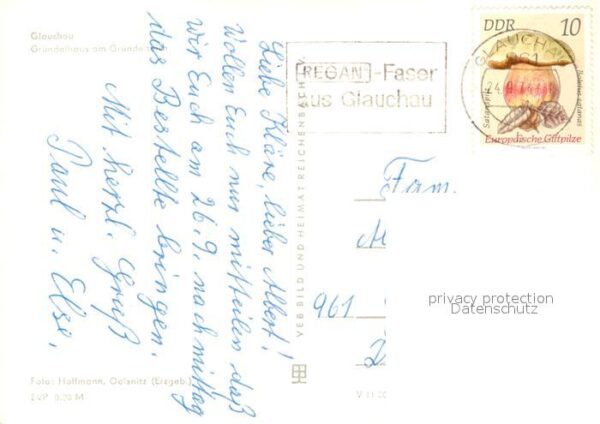 Glauchau
Gründelhaus am Gründelteich
Liebe Kläre, lieber Albert!
Wollen Euch nur mitteilen daß
wir Euch am 26.9. nachmittag
das Bestellte bringen.
Mit herzl. Gruß
Paul u. Else.
Foto: Hoffmann, Oelsnitz (Erzgeb.)
EVP 0,20 M
VEB BILD UND HEIMAT REICHENBACH i. V.
REGAN-Faser
aus Glauchau
DDR 10
GLAUCHAU
961
Satanspilz
Boletus satanas
Europäische Giftpilze
Fam.
961
privacy protection
Datenschutz
V 11 20